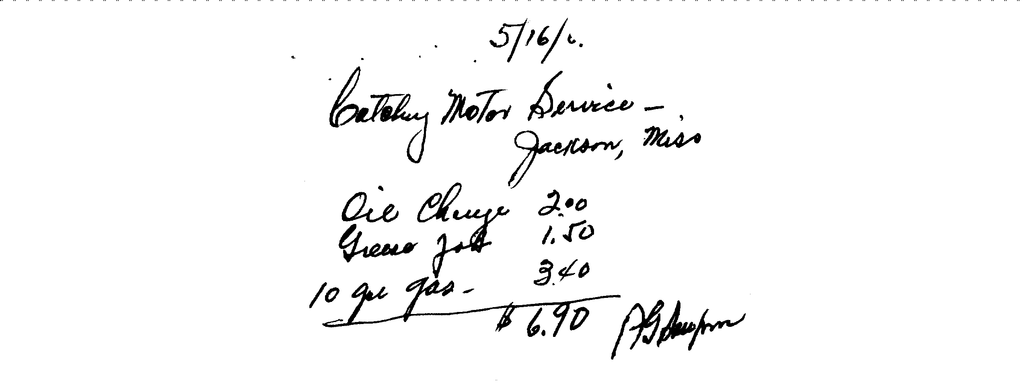 5/16/
Motor Service –
Jackson, Miss
Oil Change 2.00
Grease Job 1.50
10 gas – 3.40
$ 6.90